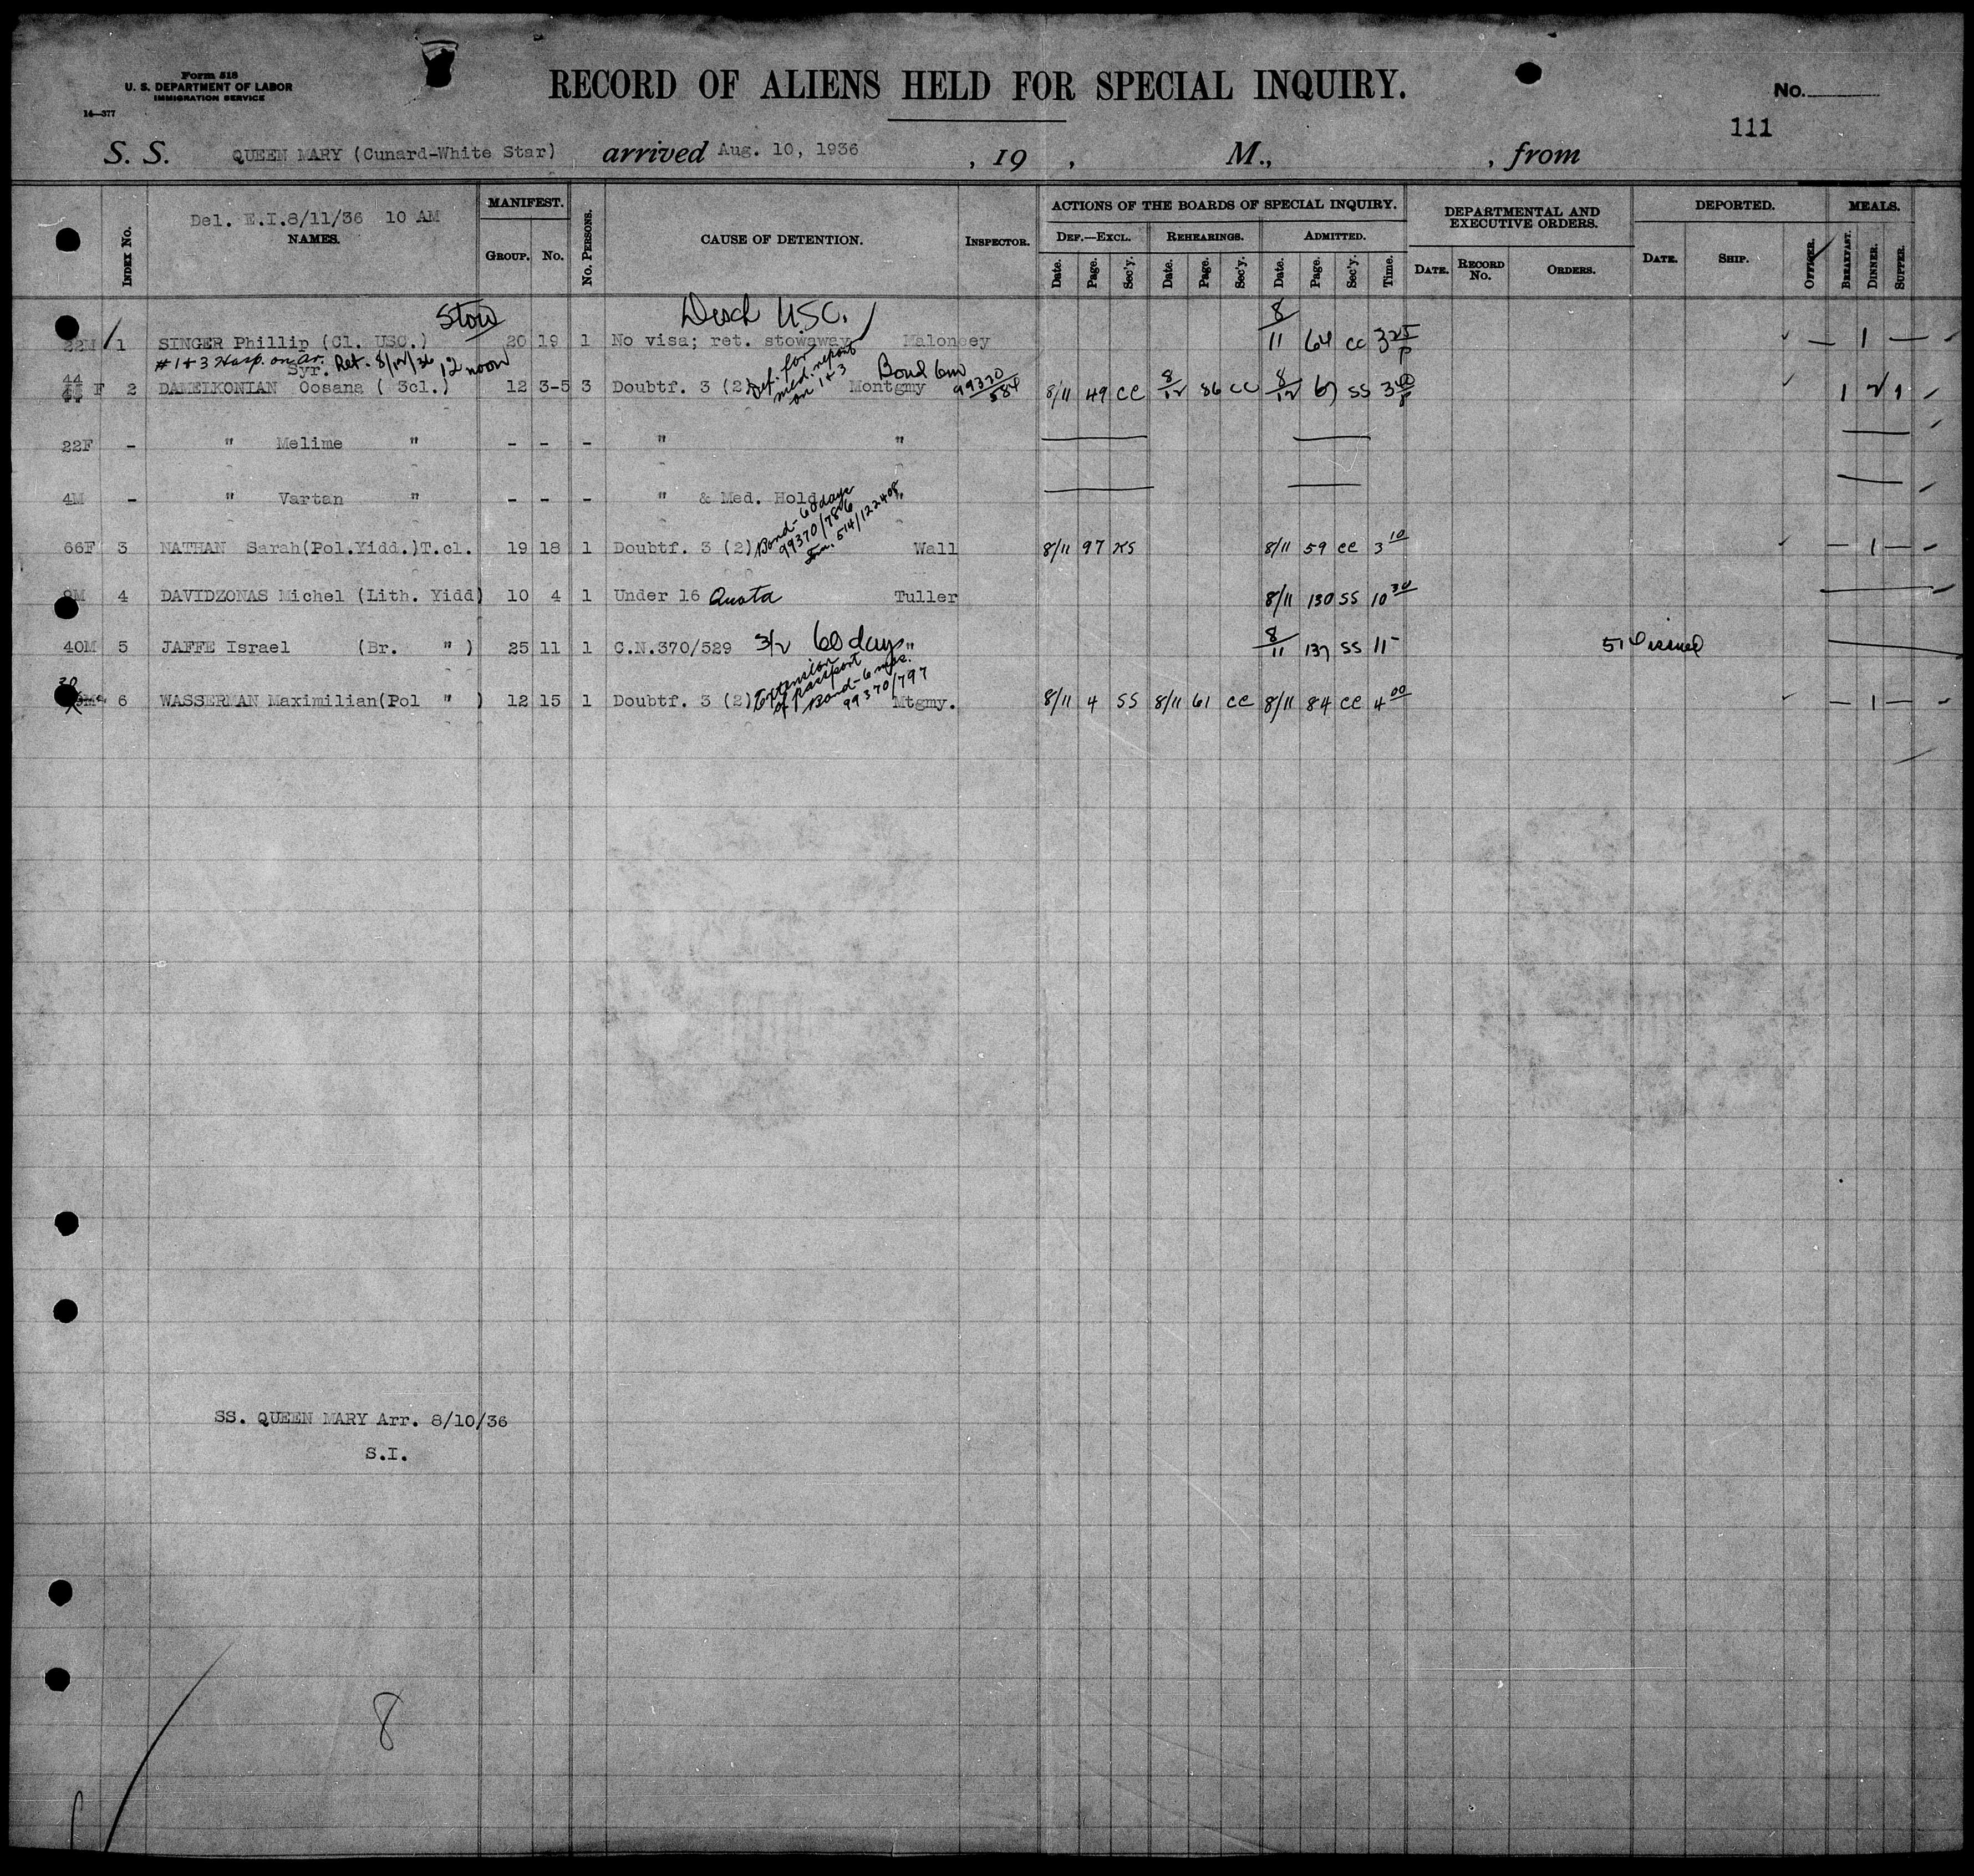 Form 518
U. S. DEPARTMENT OF LABOR
IMMIGRATION SERVICE
14—377
RECORD OF ALIENS HELD FOR SPECIAL INQUIRY.
No.
111
S. S. QUEEN MARY (Cunard-White Star) arrived Aug. 10, 1936 , 19 , M., , from
Del. E.I.8/11/36 10 AM
INDEX No. NAMES. MANIFEST. GROUP. No. No. PERSONS. CAUSE OF DETENTION. INSPECTOR. ACTIONS OF THE BOARDS OF SPECIAL INQUIRY. DEF.—EXCL. Date. Page. Sec'y. REHEARINGS. Date. Page. Sec'y. ADMITTED. Date. Page. Sec'y. Time. DEPARTMENTAL AND EXECUTIVE ORDERS. DATE. RECORD No. ORDERS. DEPORTED. DATE. SHIP. OFFICER. MEALS. BREAKFAST. DINNER. SUPPER.
Stow USC.
22M 1 SINGER Phillip (Cl. USC.) 20 19 1 No visa; ret. stowaway Maloney 8/11 64 CC 3 25/P — 1 —
#1+3 Hosp. on Ar. Ret. 8/12/36 12 noon
Syr.
Def. for med. report on 1+3
Bond 6m 99370/584
44 F 2 DAMELKONIAN Oosana ( 3cl.) 12 3-5 3 Doubtf. 3 (2) Montgmy 8/11 49 CC 8/12 86 CC 8/12 67 SS 3 40/P 1 2 1
22F - " Melime " - - - " "
4M - " Vartan " - - - " & Med. Hold "
Bond-60 days 99370/786
514/122408
66F 3 NATHAN Sarah(Pol.Yidd.)T.cl. 19 18 1 Doubtf. 3 (2) Wall 8/11 97 KS 8/11 59 CC 3 10 — 1 —
4 DAVIDZONAS Michel (Lith. Yidd) 10 4 1 Under 16 Quota Tuller 8/11 130 SS 10 30
40M 5 JAFFE Israel (Br. " ) 25 11 1 C.N.370/529 3/2 60 days " 8/11 137 SS 11- issued
Extension of passport
Bond-6 mos. 99370/797
6 WASSERMAN Maximilian(Pol " ) 12 15 1 Doubtf. 3 (2) Mtgmy. 8/11 4 SS 8/11 61 CC 8/11 84 CC 4 00 — 1 —
SS. QUEEN MARY Arr. 8/10/36
S.I.
8